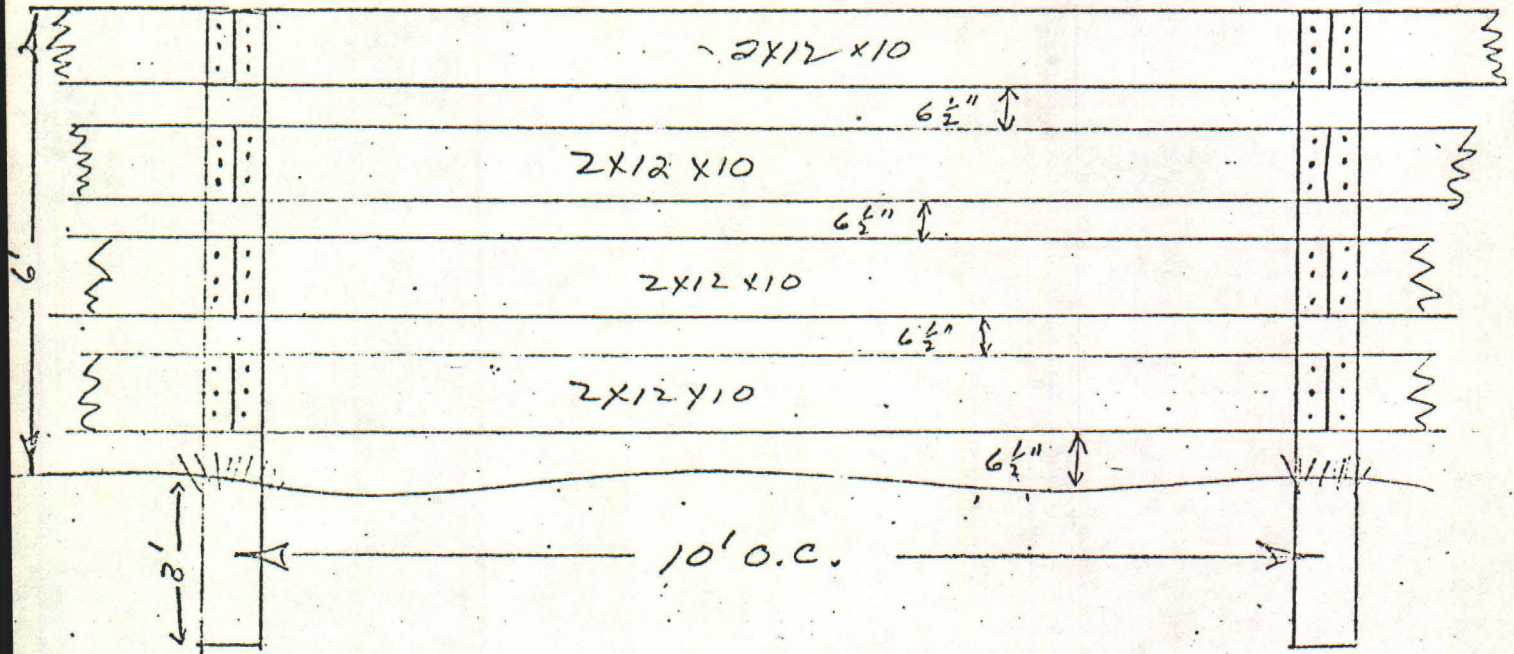 2X12 X10
6 1/2"
2X12 X10
6 1/2"
6'
2X12 X10
6 1/2"
2X12 X10
6 1/2"
10' O.C.